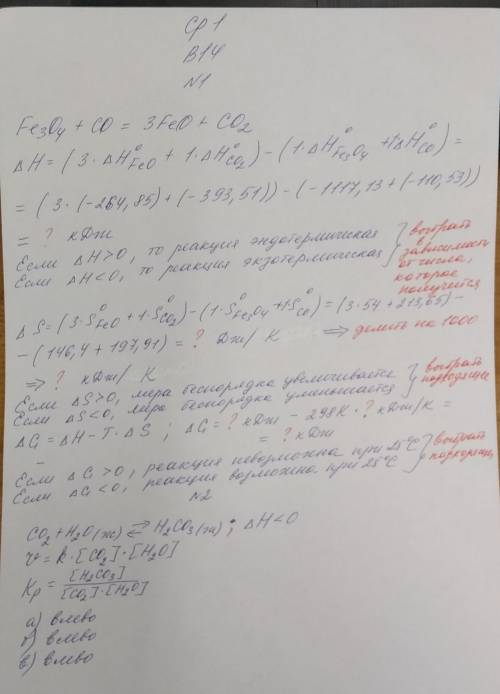 Ср 1
В14
N1
Fe₃O₄ + CO = 3FeO + CO₂
ΔH = (3·ΔH°FeO + 1·ΔH°CO₂) - (1·ΔH°Fe₃O₄ + 1ΔH°CO) =
= (3·(-264,85) + (-393,51)) - (-1117,13 + (-110,53))
= ? кДж
Если ΔH>0, то реакция эндотермическая
Если ΔH<0, то реакция экзотермическая
} выбрать
в
зависимости
от числа,
которое
получится
ΔS = (3·S°FeO + 1·S°CO₂) - (1·S°Fe₃O₄ + 1S°CO) = (3·54 + 213,65) -
- (146,4 + 197,91) = ? Дж/К ⇒ делить на 1000
⇒ ? кДж/К
Если ΔS>0, мера беспорядка увеличивается
Если ΔS<0, мера беспорядка уменьшается
} выбрать
подходящее
ΔG = ΔH - T·ΔS ; ΔG = ? кДж - 298К·? кДж/К =
= ? кДж
Если ΔG>0, реакция невозможна при 25°C
Если ΔG<0, реакция возможна при 25°C
} выбрать
N2
CO₂ + H₂O(ж) ⇄ H₂CO₃(ж) ; ΔH<0
v = k·[CO₂]·[H₂O]
Kp = [H₂CO₃] / [CO₂]·[H₂O]
а) влево
б) влево
в) влево